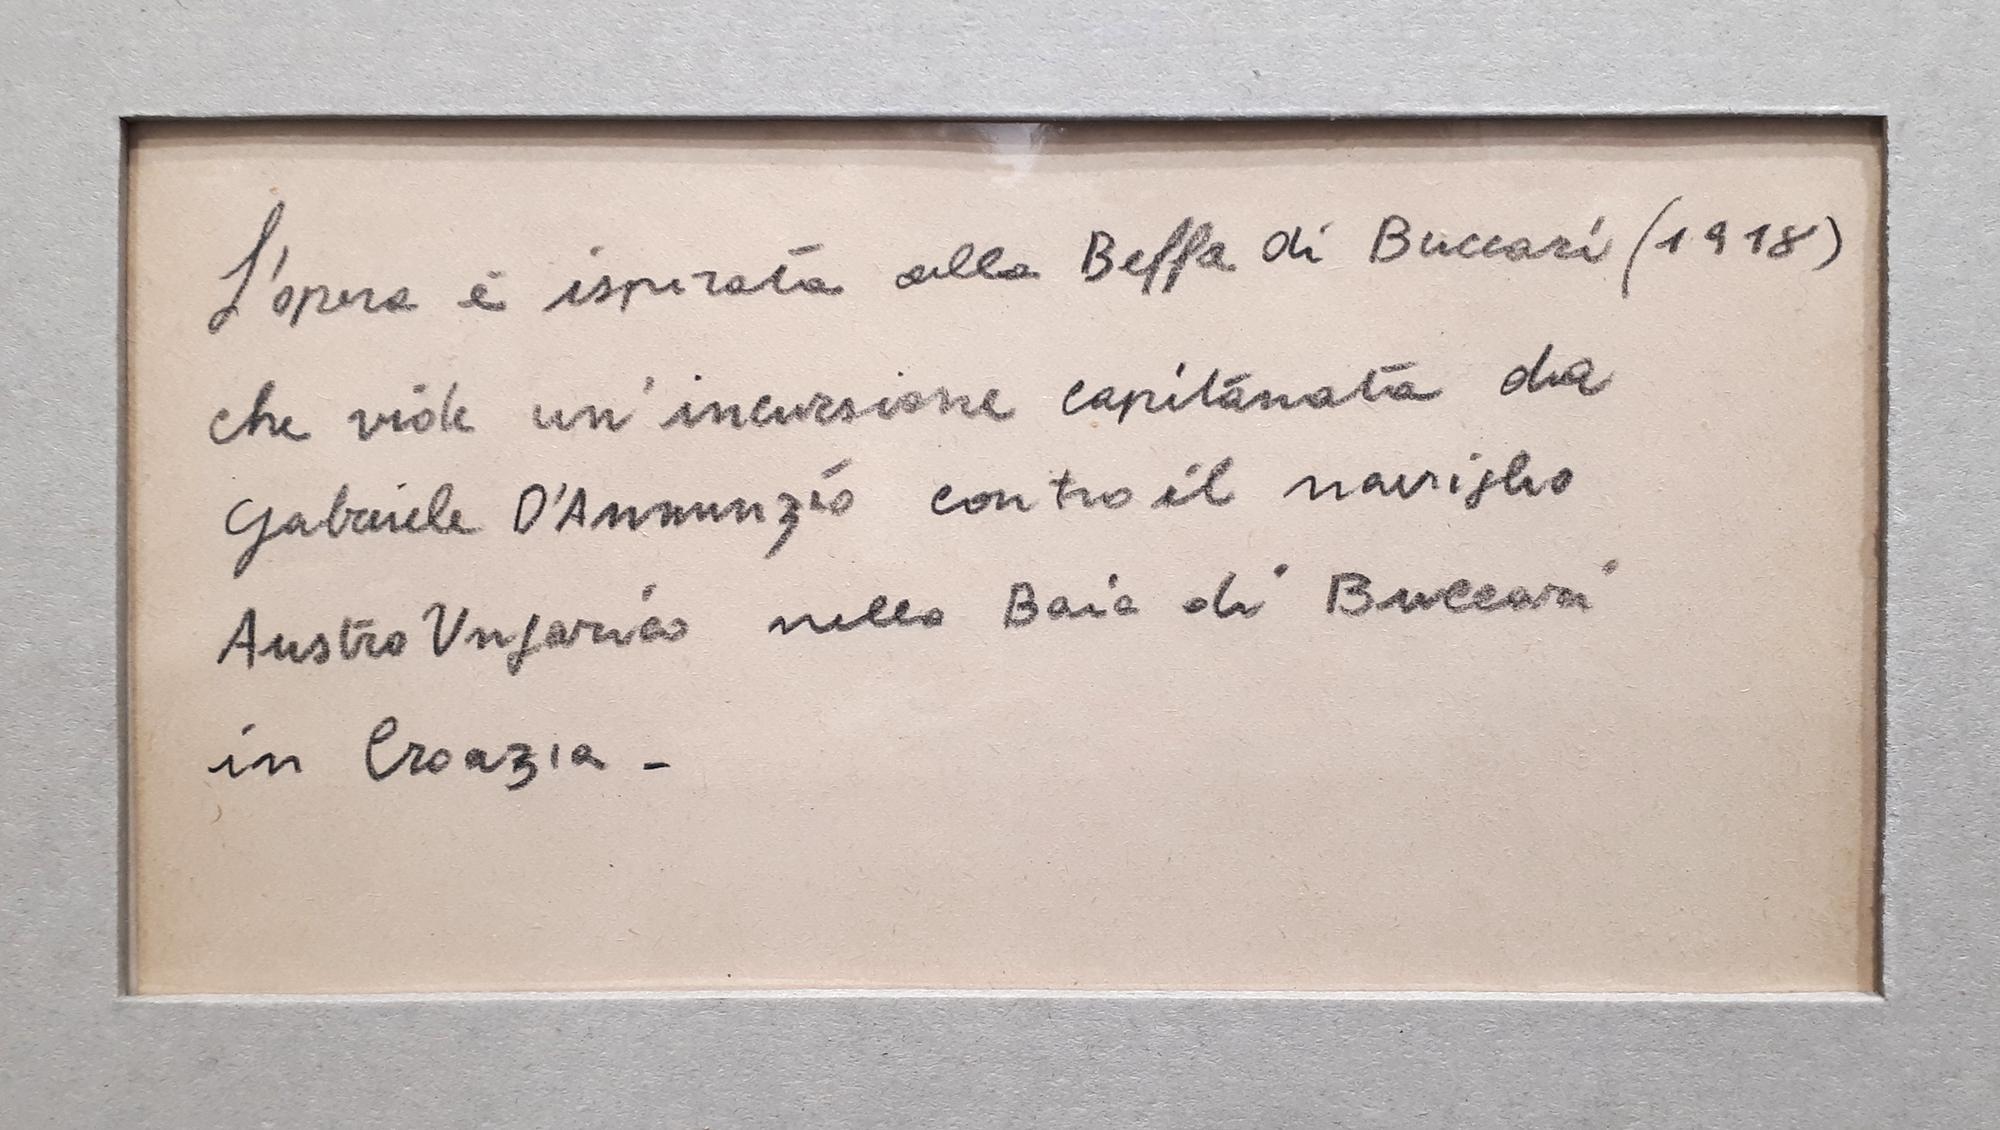 L'opera è ispirata alla Beffa di Buccari (1918)
che vide un'incursione capitanata da
Gabriele D'Annunzio contro il naviglio
Austro Ungarico nella Baia di Buccari
in Croazia -